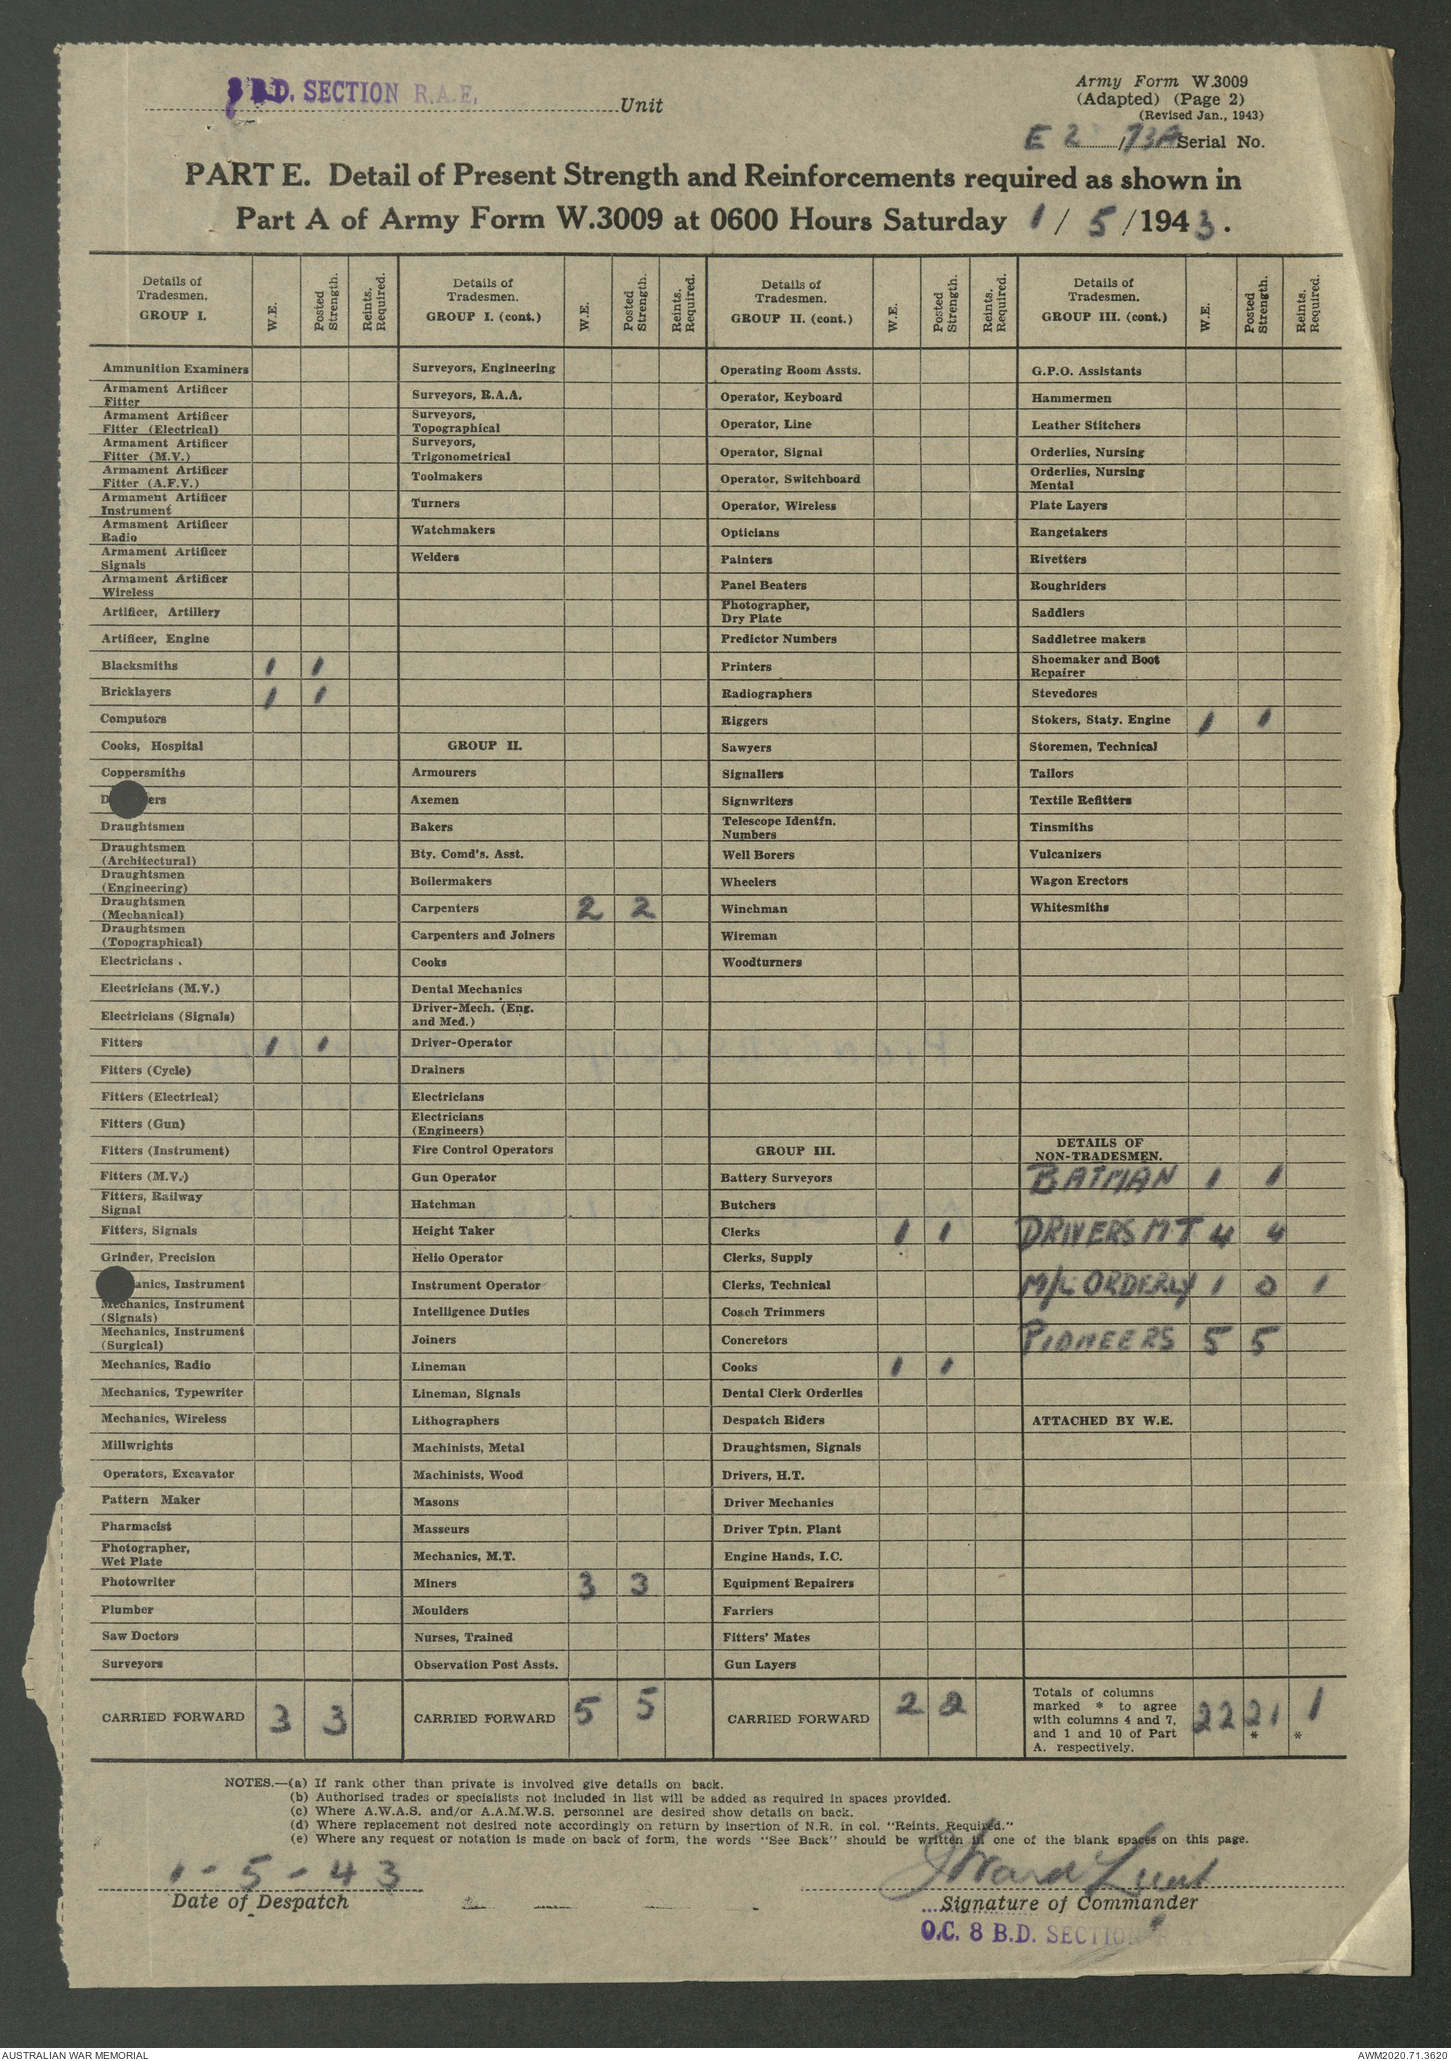 8 B.D. SECTION R.A.E. Unit
Army Form W.3009
(Adapted) (Page 2)
(Revised Jan., 1943)
E 2 / 73A Serial No.
PART E. Detail of Present Strength and Reinforcements required as shown in
Part A of Army Form W.3009 at 0600 Hours Saturday 1 / 5 / 1943.
Details of Tradesmen. GROUP I. W.E. Posted Strength. Reints. Required. Details of Tradesmen. GROUP I. (cont.) W.E. Posted Strength. Reints. Required. Details of Tradesmen. GROUP II. (cont.) W.E. Posted Strength. Reints. Required. Details of Tradesmen. GROUP III. (cont.) W.E. Posted Strength. Reints. Required.
Ammunition Examiners Surveyors, Engineering Operating Room Assts. G.P.O. Assistants
Armament Artificer Fitter Surveyors, R.A.A. Operator, Keyboard Hammermen
Armament Artificer Fitter (Electrical) Surveyors, Topographical Operator, Line Leather Stitchers
Armament Artificer Fitter (M.V.) Surveyors, Trigonometrical Operator, Signal Orderlies, Nursing
Armament Artificer Fitter (A.F.V.) Toolmakers Operator, Switchboard Orderlies, Nursing Mental
Armament Artificer Instrument Turners Operator, Wireless Plate Layers
Armament Artificer Radio Watchmakers Opticians Rangetakers
Armament Artificer Signals Welders Painters Rivetters
Armament Artificer Wireless Panel Beaters Roughriders
Artificer, Artillery Photographer, Dry Plate Saddlers
Artificer, Engine Predictor Numbers Saddletree makers
Blacksmiths 1 1 Printers Shoemaker and Boot Repairer
Bricklayers 1 1 Radiographers Stevedores
Computors Riggers Stokers, Staty. Engine 1 1
Cooks, Hospital GROUP II. Sawyers Storemen, Technical
Coppersmiths Armourers Signallers Tailors
D ers Axemen Signwriters Textile Refitters
Draughtsmen Bakers Telescope Identfn. Numbers Tinsmiths
Draughtsmen (Architectural) Bty. Comd's. Asst. Well Borers Vulcanizers
Draughtsmen (Engineering) Boilermakers Wheelers Wagon Erectors
Draughtsmen (Mechanical) Carpenters 2 2 Winchman Whitesmiths
Draughtsmen (Topographical) Carpenters and Joiners Wireman
Electricians . Cooks Woodturners
Electricians (M.V.) Dental Mechanics
Electricians (Signals) Driver-Mech. (Eng. and Med.)
Fitters 1 1 Driver-Operator
Fitters (Cycle) Drainers
Fitters (Electrical) Electricians
Fitters (Gun) Electricians (Engineers)
Fitters (Instrument) Fire Control Operators GROUP III. DETAILS OF NON-TRADESMEN.
Fitters (M.V.) Gun Operator Battery Surveyors BATMAN 1 1
Fitters, Railway Signal Hatchman Butchers
Fitters, Signals Height Taker Clerks 1 1 DRIVERS MT 4 4
Grinder, Precision Helio Operator Clerks, Supply
anics, Instrument Instrument Operator Clerks, Technical M/C ORDERLY 1 0 1
Mechanics, Instrument (Signals) Intelligence Duties Coach Trimmers
Mechanics, Instrument (Surgical) Joiners Concretors PIONEERS 5 5
Mechanics, Radio Lineman Cooks 1 1
Mechanics, Typewriter Lineman, Signals Dental Clerk Orderlies
Mechanics, Wireless Lithographers Despatch Riders ATTACHED BY W.E.
Millwrights Machinists, Metal Draughtsmen, Signals
Operators, Excavator Machinists, Wood Drivers, H.T.
Pattern Maker Masons Driver Mechanics
Pharmacist Masseurs Driver Tptn. Plant
Photographer, Wet Plate Mechanics, M.T. Engine Hands, I.C.
Photowriter Miners 3 3 Equipment Repairers
Plumber Moulders Farriers
Saw Doctors Nurses, Trained Fitters' Mates
Surveyors Observation Post Assts. Gun Layers
CARRIED FORWARD 3 3 CARRIED FORWARD 5 5 CARRIED FORWARD 2 2 Totals of columns marked * to agree with columns 4 and 7, and 1 and 10 of Part A. respectively. 22 21 * 1 *
NOTES.—(a) If rank other than private is involved give details on back.
(b) Authorised trades or specialists not included in list will be added as required in spaces provided.
(c) Where A.W.A.S. and/or A.A.M.W.S. personnel are desired show details on back.
(d) Where replacement not desired note accordingly on return by insertion of N.R. in col. "Reints. Required."
(e) Where any request or notation is made on back of form, the words "See Back" should be written in one of the blank spaces on this page.
1 - 5 - 43 Ward Lieut
Date of Despatch Signature of Commander
O.C. 8 B.D. SECTION R.A.E.
AUSTRALIAN WAR MEMORIAL AWM2020.71.3620